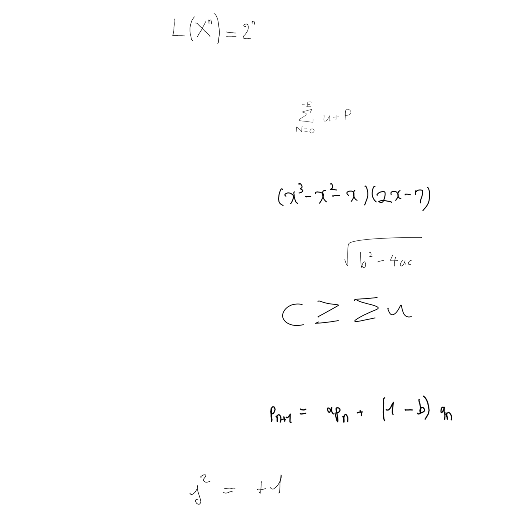 L(Xⁿ) = 2ⁿ
∑_{N=0}^{-B} u+P
(x³-x²-x)(2x-7)
√(b²-4ac)
C ≥ ∑u
p_{n+1} = ap_n + (1-b) q_n
j² = +1